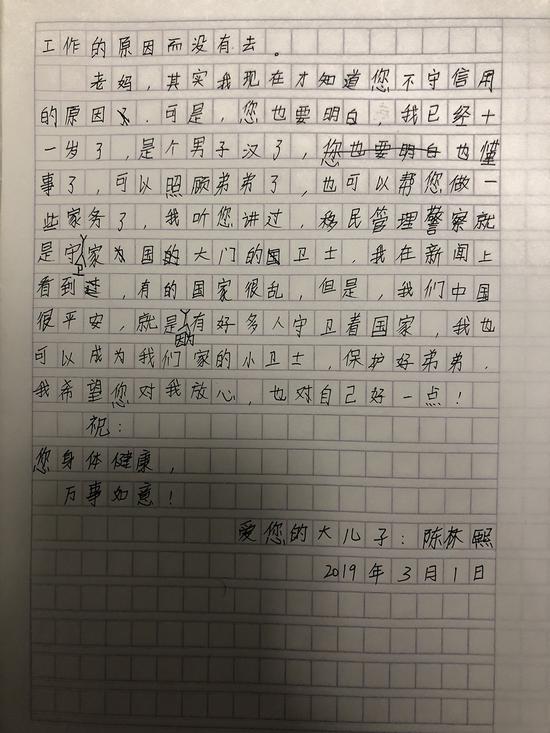 工作的原因而没有去。
老妈，其实我现在才知道您不守信用
的原因，可是，您也要明白，我已经十
一岁了，是个男子汉了，您也要明白也懂
事了，可以照顾弟弟了，也可以帮您做一
些家务了，我听您讲过，移民管理警察就
是守卫家为国的大门的国卫士，我在新闻上
看到过，有的国家很乱，但是，我们中国
很平安，就是因为有好多人守卫着国家，我也
可以成为我们家的小卫士，保护好弟弟，
我希望您对我放心，也对自己好一点！
祝：
您身体健康，
万事如意！
爱您的大儿子：陈林熙
2019年3月1日